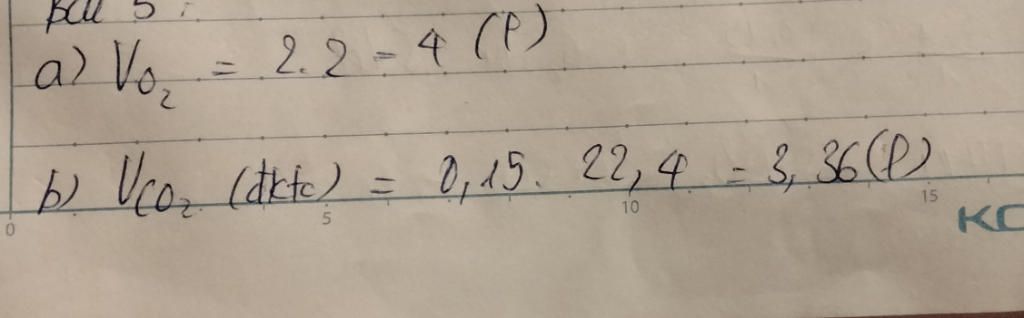 Bài 5:
a) VO₂ = 2.2 = 4 (l)
b) VCO₂ (đktc) = 0,15. 22,4 = 3,36(l)
0 5 10 15
KC